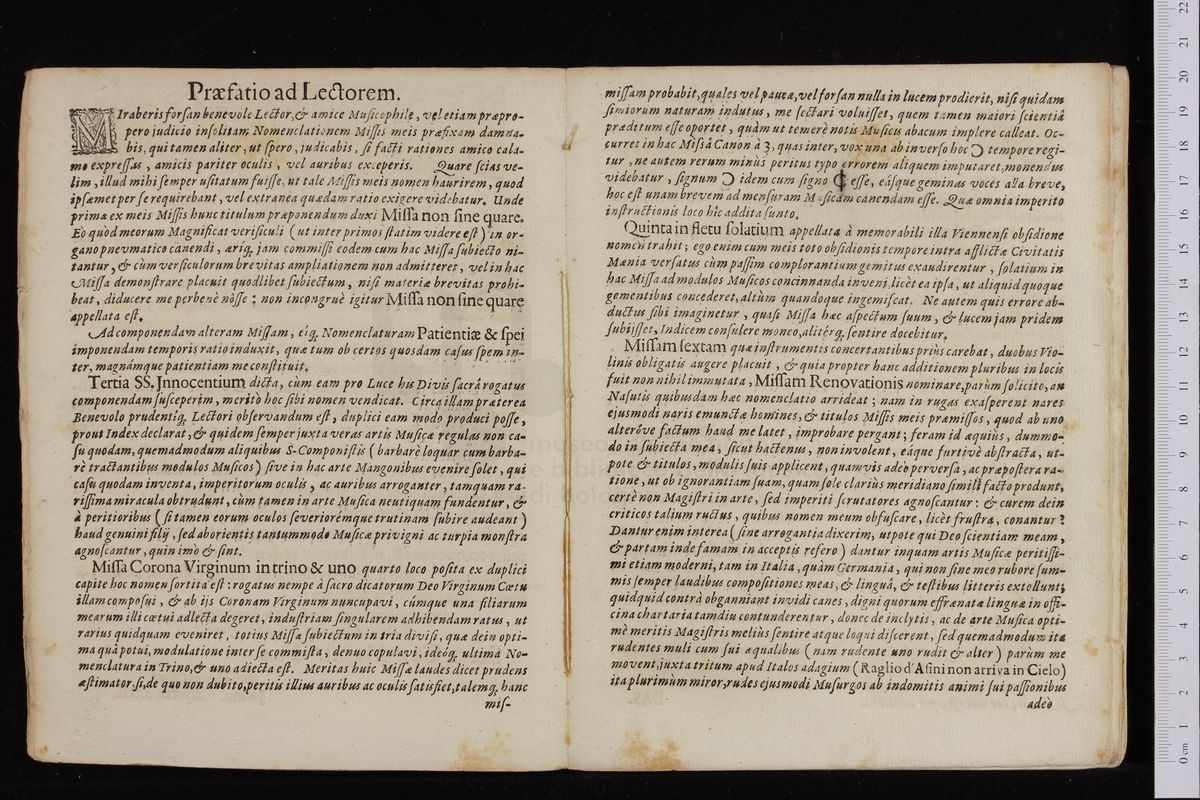 Præfatio ad Lectorem.
MIraberis forsan benevole Lector, & amice Musicophile, vel etiam præpro-
pero judicio insolitam Nomenclationem Missis meis præfixam damna-
bis, qui tamen aliter, ut spero, judicabis, si facti rationes amico cala-
mo expressas, amicis pariter oculis, vel auribus exceperis. Quare scias ve-
lim, illud mihi semper usitatum fuisse, ut tale Missis meis nomen haurirem, quod
ipsæmet per se requirebant, vel extranea quædam ratio exigere videbatur. Unde
primæ ex meis Missis hunc titulum præponendum duxi Missa non sine quare.
Eo quòd meorum Magnificat versiculi (ut inter primos statim videre est) in or-
gano pneumatico canendi, ariq́; jam commissi eodem cum hac Missa subiecto ni-
tantur, & cùm versiculorum brevitas ampliationem non admitteret, vel in hac
Missa demonstrare placuit quodlibet subiectum, nisi materiæ brevitas prohi-
beat, diducere me perbenè nôsse; non incongruè igitur Missa non sine quare
appellata est.
Ad componendam alteram Missam, eiq́; Nomenclaturam Patientiæ & spei
imponendam temporis ratio induxit, quæ tum ob certos quosdam casus spem in-
ter, magnámque patientiam me constituit.
Tertia SS. Innocentium dicta, cùm eam pro Luce his Divis sacrâ rogatus
componendam susceperim, meritò hoc sibi nomen vendicat. Circa illam præterea
Benevolo prudentiq́; Lectori observandum est, duplici eam modo produci posse,
prout Index declarat, & quidem semper juxta veras artis Musicæ regulas non ca-
su quodam, quemadmodum aliquibus S-Componistis (barbarè loquar cum barba-
rè tractantibus modulos Musicos) sive in hac arte Mangonibus evenire solet, qui
casu quodam inventa, imperitorum oculis, ac auribus arroganter, tamquam ra-
rissima miracula obtrudunt, cùm tamen in arte Musica neutiquam fundentur, &
à peritioribus (si tamen eorum oculos severiorémque trutinam subire audeant)
haud genuini filij, sed aborientis tantummodo Musicæ privigni ac turpia monstra
agnoscantur, quin imò & sint.
Missa Corona Virginum in trino & uno quarto loco posita ex duplici
capite hoc nomen sortita est: rogatus nempe à sacro dicatorum Deo Virginum Cœtu
illam composui, & ab ijs Coronam Virginum nuncupavi, cúmque una filiarum
mearum illi cœtui adlecta degeret, industriam singularem adhibendam ratus, ut
rarius quidquam eveniret, totius Missæ subiectum in tria divisi, quæ dein opti-
ma quâ potui, modulatione inter se commista, denuo copulavi, ideóq́; ultima No-
menclatura in Trino, & uno adiecta est. Meritas huic Missæ laudes dicet prudens
æstimator, si, de quo non dubito, peritis illius auribus ac oculis satisfiet, talemq́; hanc
mis-
missam probabit, quales vel paucæ, vel forsan nulla in lucem prodierit, nisi quidam
simiorum naturam indutus, me sectari voluisset, quem tamen maiori scientiâ
præditum esse oportet, quàm ut temerè notis Musicus abacum implere calleat. Oc-
curret in hac Missâ Canon à 3, quas inter, vox una ab inverso hoc Ɔ tempore regi-
tur, ne autem rerum minùs peritus typo errorem aliquem imputaret, monendus
videbatur, signum Ɔ idem cum signo ¢ esse, eásque geminas voces alla breve,
hoc est unam brevem ad mensuram Musicam canendam esse. Quæ omnia imperito
instructionis loco hîc addita sunto.
Quinta in fletu solatium appellata à memorabili illa Viennensi obsidione
nomen trahit; ego enim cum meis toto obsidionis tempore intra afflictæ Civitatis
Mœnia versatus cùm passim complorantium gemitus exaudirentur, solatium in
hac Missa ad modulos Musicos concinnanda inveni, licèt ea ipsa, ut aliquid quoque
gementibus concederet, altiùm quandoque ingemiscat. Ne autem quis errore ab-
ductus sibi imaginetur, quasi Missa hæc aspectum suum, & lucem jam pridem
subijsset, Indicem consulere moneo, alitérq́; sentire docebitur.
Missam sextam quæ instrumentis concertantibus priùs carebat, duobus Vio-
linis obligatis augere placuit, & quia propter hanc additionem pluribus in locis
fuit non nihil immutata, Missam Renovationis nominare, parùm solicito, an
Nasutis quibusdam hæc nomenclatio arrideat; nam in rugas exasperent nares
ejusmodi naris emunctæ homines, & titulos Missis meis præmissos, quod ab uno
alteróve factum haud me latet, improbare pergant; feram id æquiùs, dummo-
do in subiecta mea, sicut hactenus, non involent, eáque furtivè abstracta, ut-
pote & titulos, modulis suis applicent, quamvis adeò perversa, ac præpostera ra-
tione, ut ob ignorantiam suam, quam sole clariùs meridiano simili facto produnt,
certè non Magistri in arte, sed imperiti scrutatores agnoscantur: & curem dein
criticos talium ructus, quibus nomen meum obfuscare, licèt frustra, conantur?
Dantur enim interea (sine arrogantia dixerim, utpote qui Deo scientiam meam,
& partam inde famam in acceptis refero) dantur inquam artis Musicæ peritissi-
mi etiam moderni, tam in Italia, quàm Germania, qui non sine meo rubore sum-
mis semper laudibus compositiones meas, & linguâ, & testibus litteris extollunt;
quidquid contrà obganniant invidi canes, digni quorum effrænatæ linguæ in offi-
cina chartaria tamdiu contunderentur, donec de inclytis, ac de arte Musica opti-
mè meritis Magistris meliùs sentire atque loqui discerent, sed quemadmodum ita
rudentes muli cum sui æqualibus (nam rudente uno rudit & alter) parùm me
movent, juxta tritum apud Italos adagium (Raglio d'Asini non arriva in Cielo)
ita plurimùm miror, rudes ejusmodi Musurgos ab indomitis animi sui passionibus
adeò